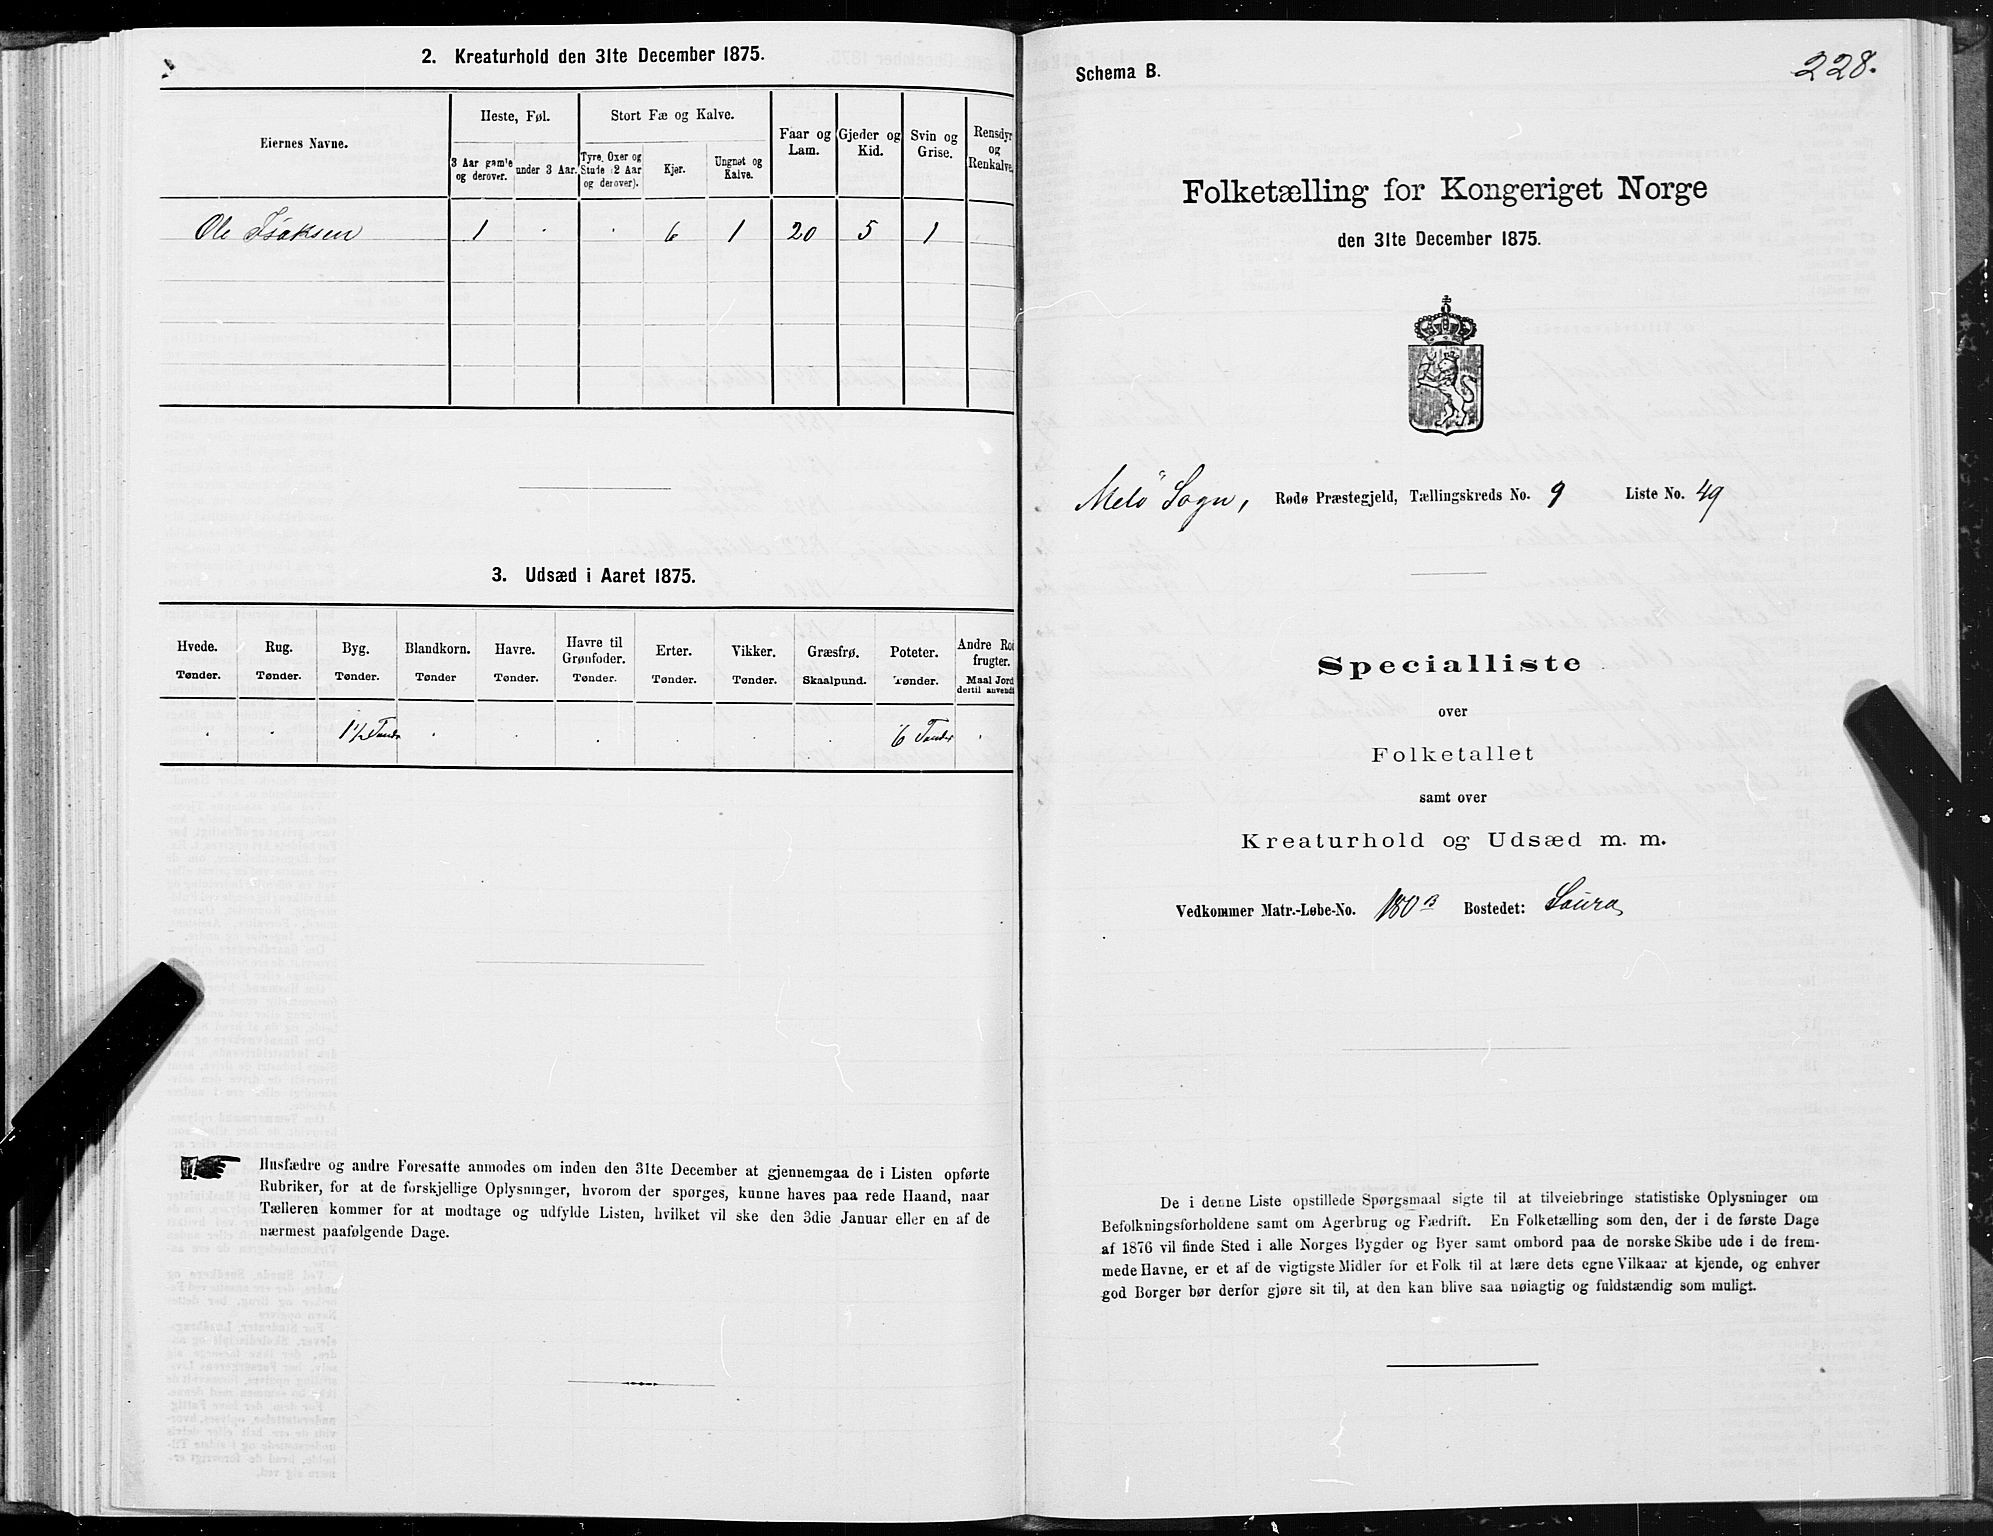 2. Kreaturhold den 31te December 1875.
Eiernes Navne.
Heste, Føl.
Stort Fæ og Kalve.
Faar og Lam.
Gjeder og Kid.
Svin og Grise.
Rensdyr og Renkalve.
3 Aar gamle og derover.
under 3 Aar.
Tyre, Oxer og Stude (2 Aar og derover).
Kjør.
Ungnøt og Kalve.
Ole Isaksen 1 . . 6 1 20 5 1
3. Udsæd i Aaret 1875.
Hvede. Rug. Byg. Blandkorn. Havre. Havre til Grønfoder. Erter. Vikker. Græsfrø. Poteter. Andre Rodfrugter.
Tønder. Tønder. Tønder. Tønder Tønder. Tønder. Tønder. Tønder. Skaalpund. Tønder. Maal Jord dertil anvendt
. . 1½ Tønder . . . . . . 6 Tønder .
Husfædre og andre Foresatte anmodes om inden den 31te December at gjennemgaa de i Listen opførte
Rubriker, for at de forskjellige Oplysninger, hvorom der spørges, kunne haves paa rede Haand, naar
Tælleren kommer for at modtage og udfylde Listen, hvilket vil ske den 3die Januar eller en af de
nærmest paafølgende Dage.
Schema B.
228.
Folketælling for Kongeriget Norge
den 31te December 1875.
Melö Sogn, Rødø Præstegjeld, Tællingskreds No. 9 Liste No. 49
Specialliste
over
Folketallet
samt over
Kreaturhold og Udsæd m. m.
Vedkommer Matr.-Løbe-No. 180 B Bostedet: Saura
De i denne Liste opstillede Spørgsmaal sigte til at tilveiebringe statistiske Oplysninger om
Befolkningsforholdene samt om Agerbrug og Fædrift. En Folketælling som den, der i de første Dage
af 1876 vil finde Sted i alle Norges Bygder og Byer samt ombord paa de norske Skibe ude i de frem-
mede Havne, er et af de vigtigste Midler for et Folk til at lære dets egne Vilkaar at kjende, og enhver
god Borger bør derfor gjøre sit til, at den kan blive saa nøiagtig og fuldstændig som muligt.